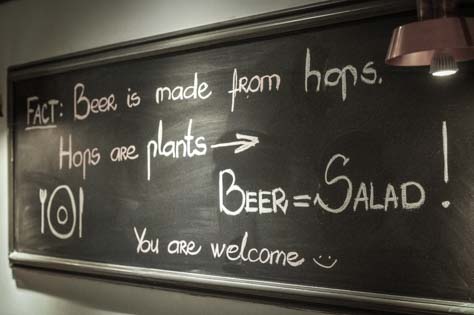 FACT: BEER is made from hops.
Hops are plants →
BEER = SALAD!
You are welcome ‿